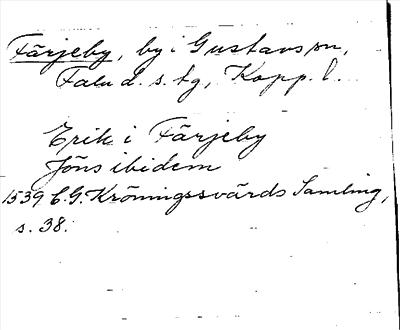 Färjeby, by i Gustavs sn,
Falu d. s. tg, Kopp. l.
Erik i Färjeby
Jöns ibidem
1539 C.G. Kröningssvärds Samling,
s. 38.